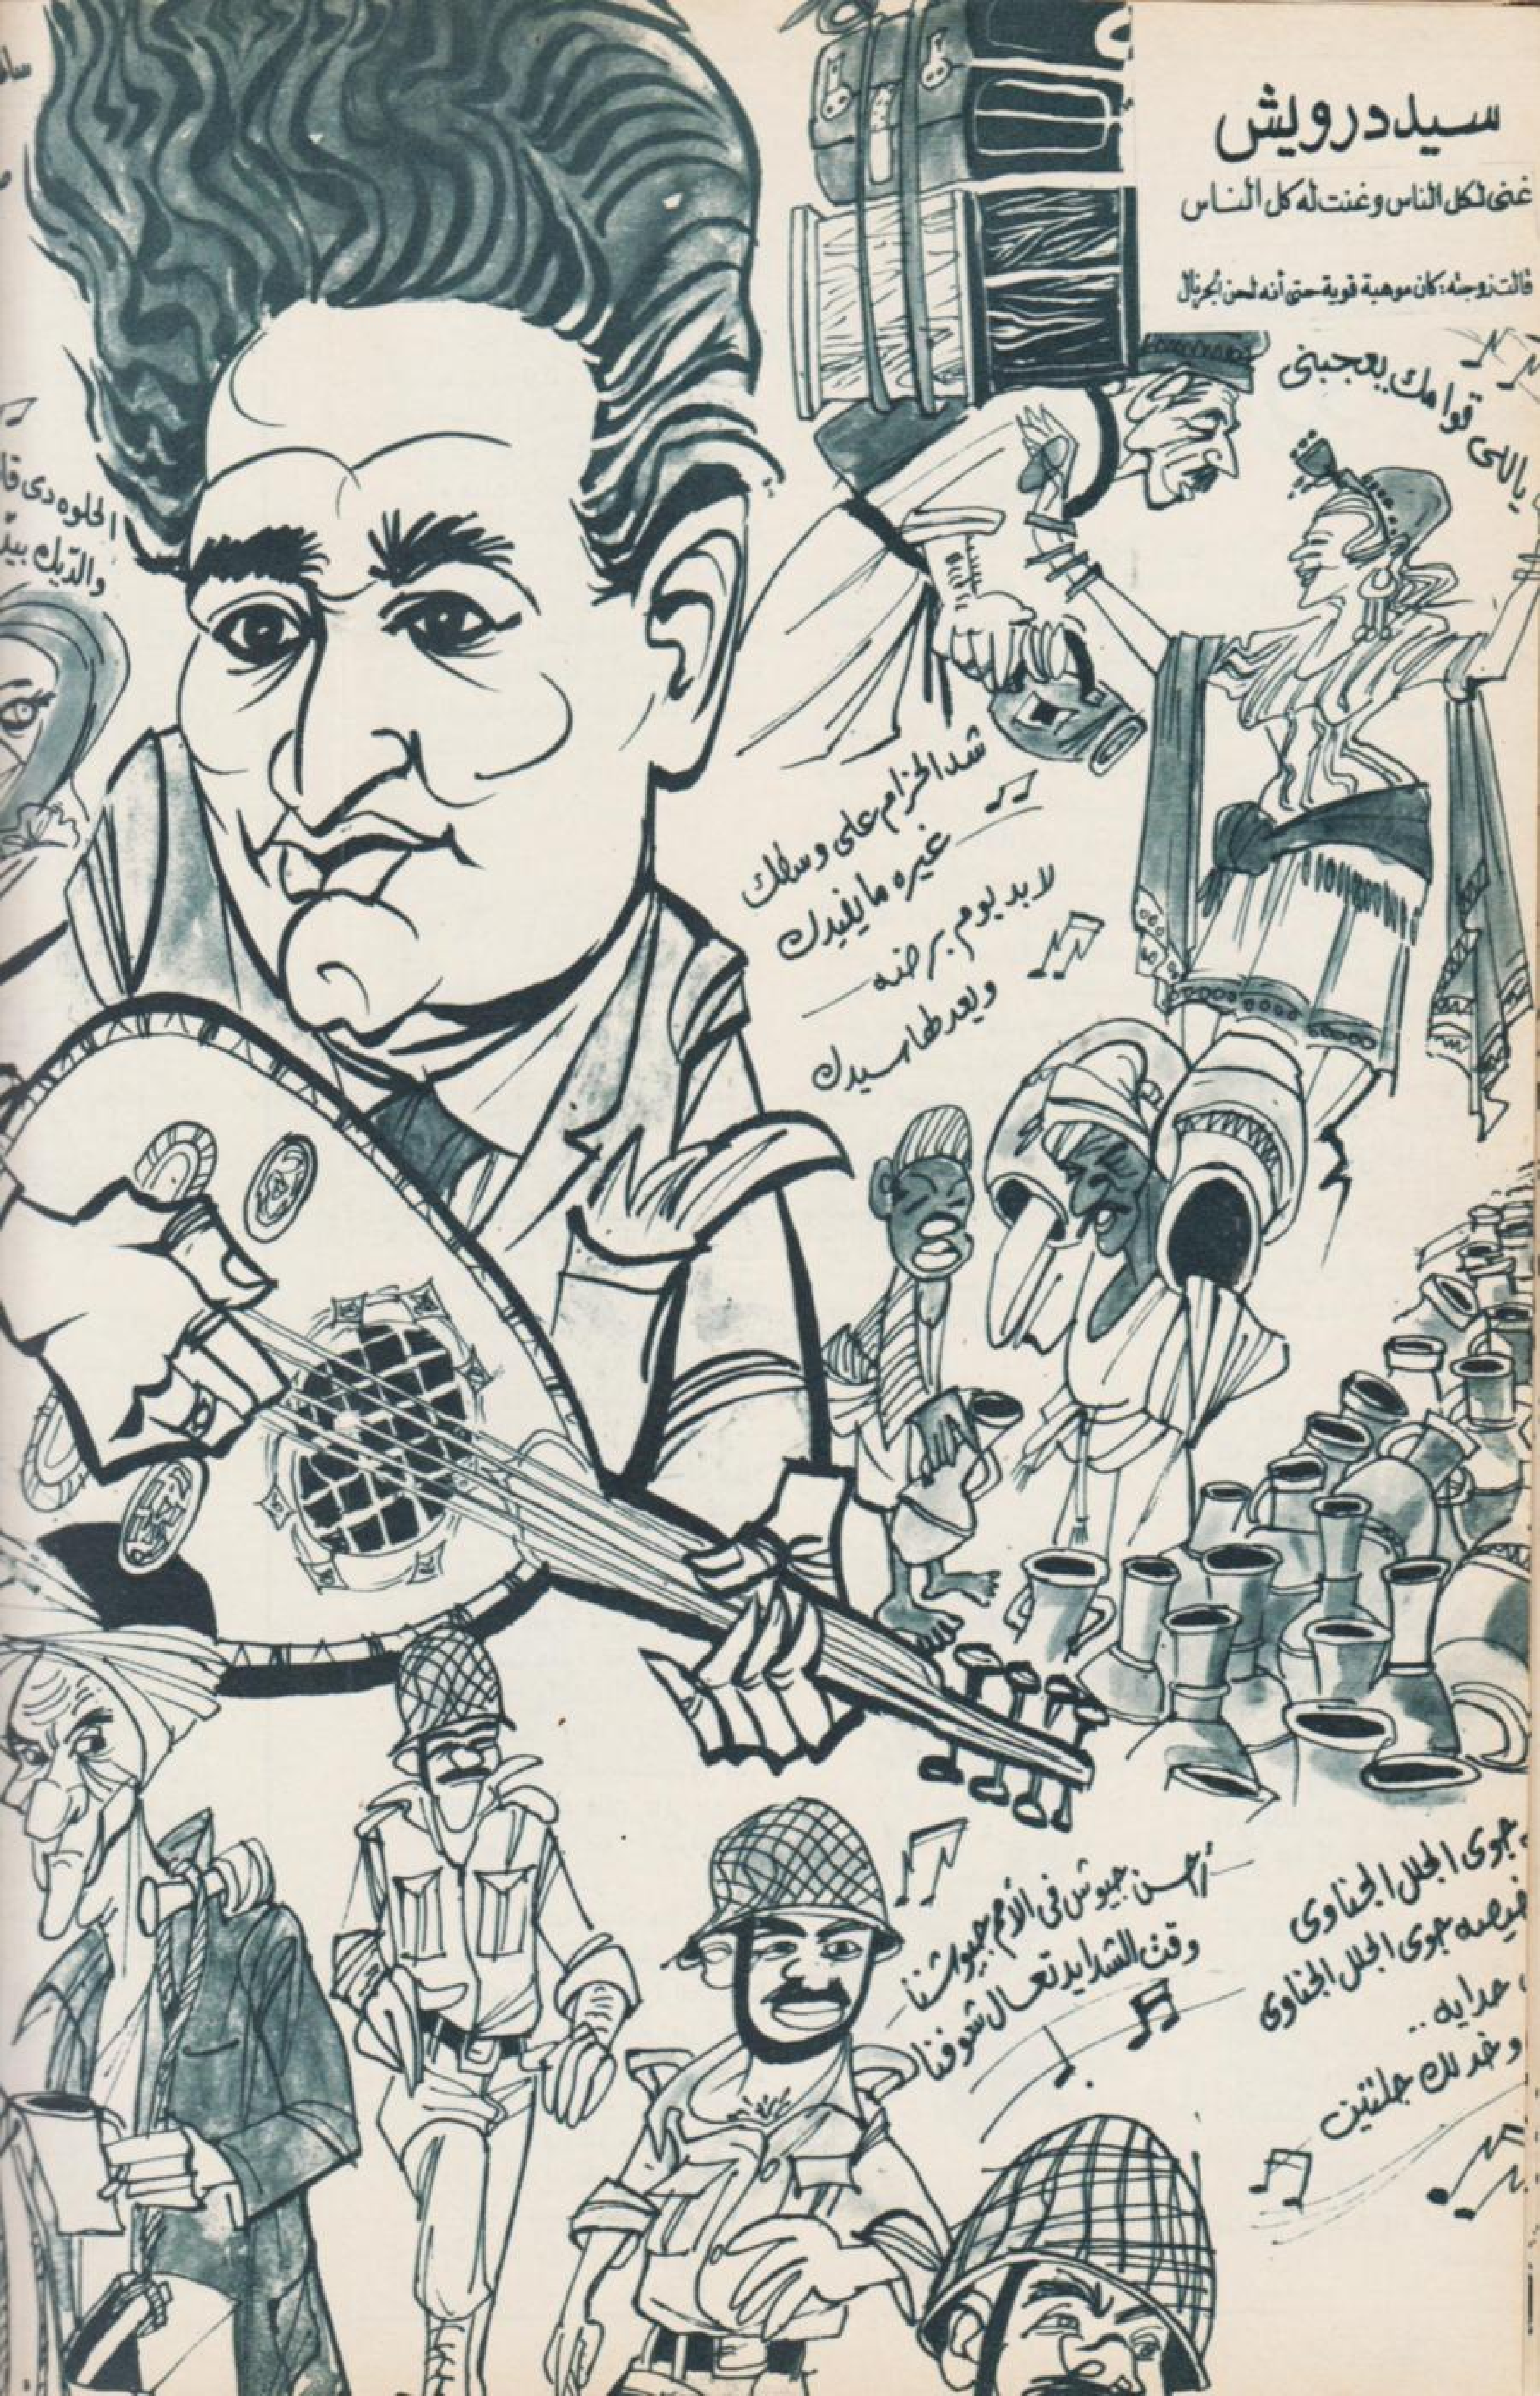 سيد درويش
غنى لكل الناس وغنت له كل الناس
قالت زوجته: كان موهبة قوية حتى أنه لحن الجرنال
ياللى قوامك يعجبنى
الحلوه دى
والديك
شد الحزام على وسطك
غيره ما يفيدك
لا بد يوم برضه
ويعدلها سيدك
أحسن جيوش فى الأمم جيوشنا
وقت الشدايد تعال شوفنا
جوى الجلل الجناوى
جوى الجلل الجناوى
حدايه ..
وخد لك جلتين